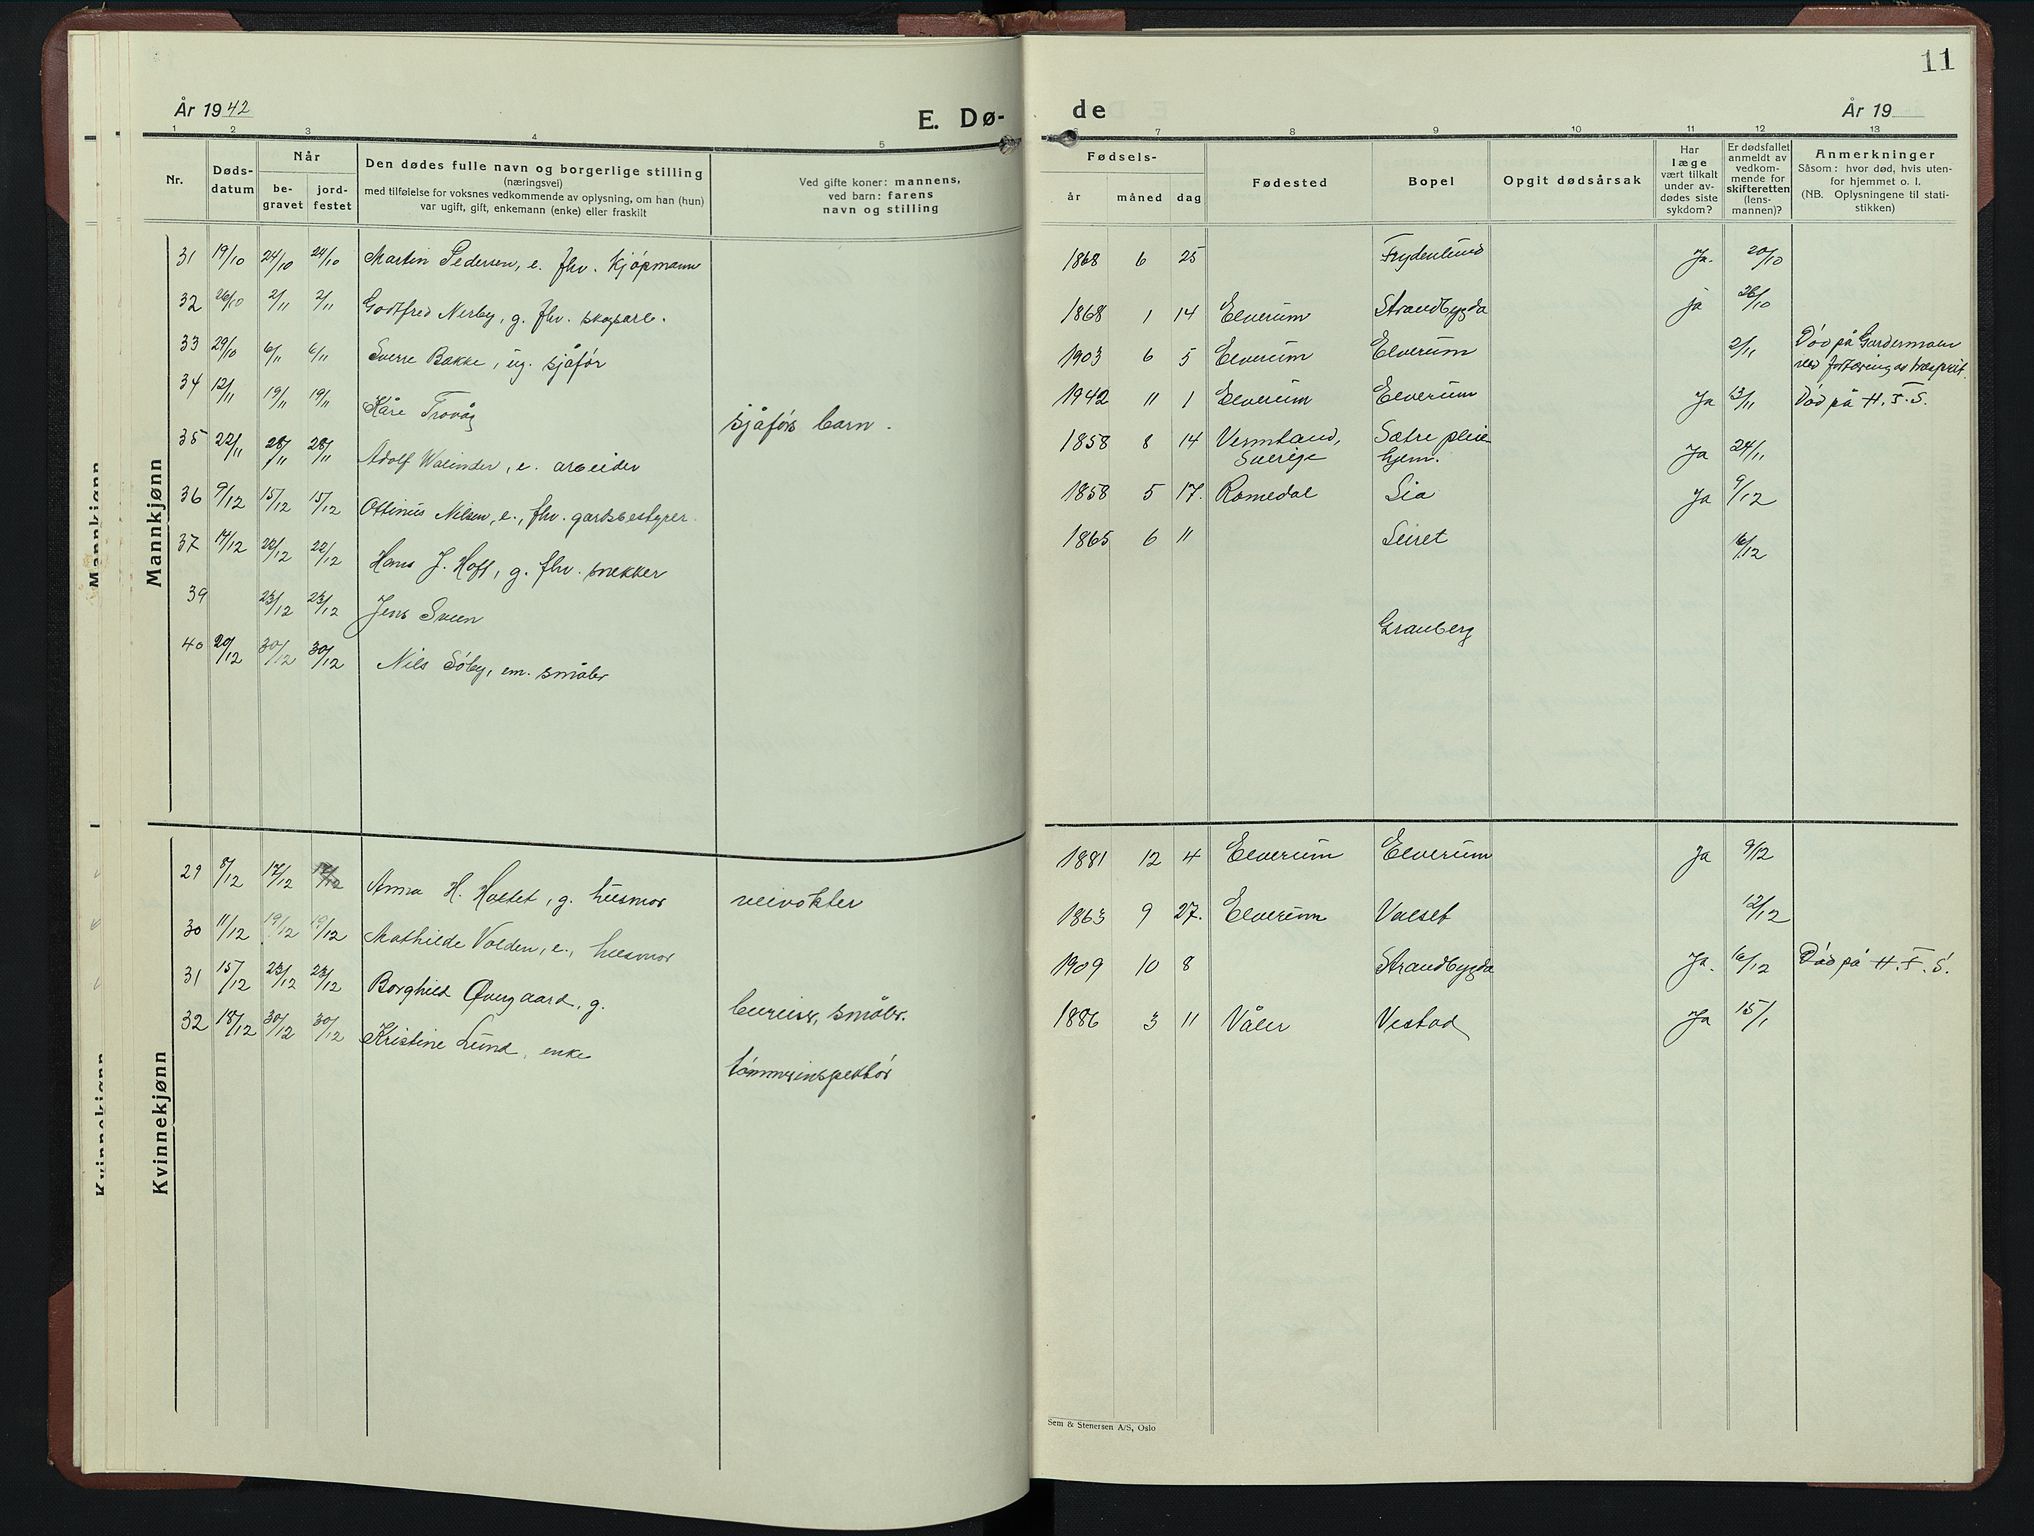 År 1942
E. Dø-
de
År 19
11
1 2 3 4 5 6 7 8 9 10 11 12 13
Nr.
Døds-
datum
Når
be-
gravet
jord-
festet
Den dødes fulle navn og borgerlige stilling
(næringsvei)
med tilføielse for voksnes vedkommende av oplysning, om han (hun)
var ugift, gift, enkemann (enke) eller fraskilt
Ved gifte koner: mannens,
ved barn: farens
navn og stilling
Fødsels-
år måned dag
Fødested
Bopel
Opgit dødsårsak
Har
læge
vært tilkalt
under av-
dødes siste
sykdom?
Er dødsfallet
anmeldt av
vedkom-
mende for
skifteretten
(lens-
mannen)?
Anmerkninger
Såsom: hvor død, hvis uten-
for hjemmet o. l.
(NB. Oplysningene til stati-
stikken)
Mannkjønn
Mannkjønn
31 19/10 24/10 24/10 Martin Pedersen, e. fhv. Kjøpmann 1868 6 25 Frydenlund Ja. 20/10
32 26/10 2/11 2/11 Godtfred Nerby, g. fhv. skogsarb. 1868 1 14 Elverum Strandbygda ja 28/10
33 29/10 6/11 6/11 Sverre Bakke, ug. sjåfør 1903 6 5 Elverum Elverum 2/11 Død på Gardermoen
ved fortæring av træsprit.
34 12/11 19/11 19/11 Kåre Trovåg sjåførs barn. 1942 11 1 Elverum Elverum Ja 13/11 Død på H. F. S.
35 22/11 28/11 28/11 Adolf Walinder, e. arbeider 1858 8 14 Vermland, Sætre pleie-
Sverige hjem. Ja 24/11
36 9/12 15/12 15/12 Ottinus Nilsen, e., fhv. gardsbestyrer. 1858 5 17. Romedal Lia Ja 9/12
37 14/12 22/12 22/12 Hans J. Hoff, g. fhv. snekker 1865 6 11 Leiret 16/12
39 23/12 23/12 Jens Sveen Grauberg
40 20/12 30/12 30/12 Nils Søby, em. småbr
Kvinnekjønn
Kvinnekjønn
29 8/12 17/12 17/12 Anna H. Holtet, g. husmor veivokter 1881 12 4 Elverum Elverum Ja 9/12
30 11/12 19/12 19/12 Mathilde Volden, e., husmor 1863 9 27. Elverum Valset 12/12
31 15/12 23/12 23/12 Borghild Øvergaard, g. bureiser, småbr. 1909 10 8 Strandbygda Ja. 16/12 Død på H. F. S.
32 18/12 30/12 30/12 Kristine Lund, enke tømmerinspektør 1886 3 11 Våler Vestad Ja 15/1
Sem & Stenersen A/S, Oslo